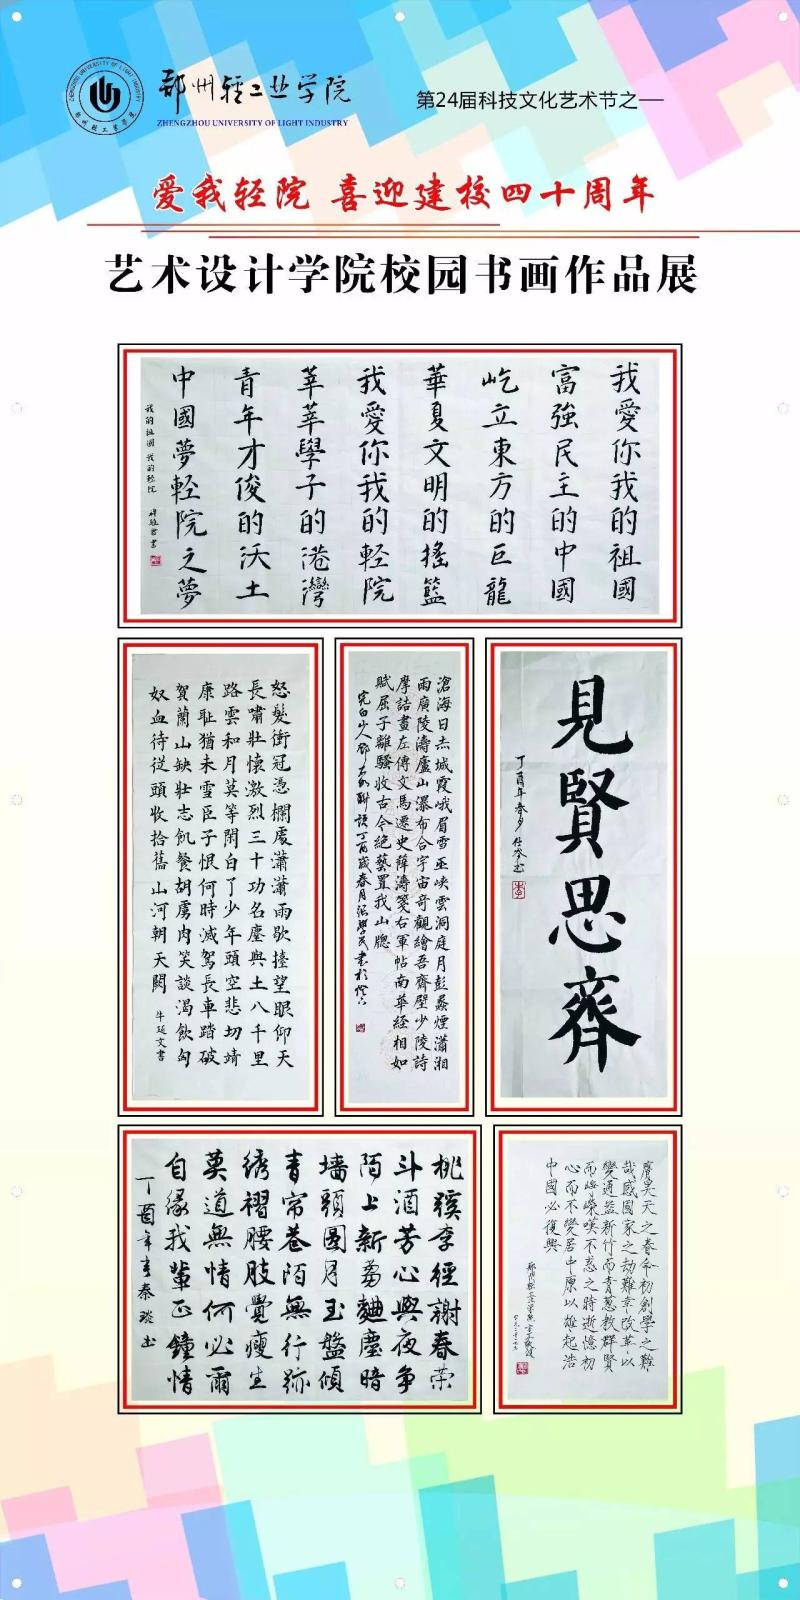 郑州轻工业学院
ZHENGZHOU UNIVERSITY OF LIGHT INDUSTRY
第24届科技文化艺术节之一
爱我轻院 喜迎建校四十周年
艺术设计学院校园书画作品展
我愛你我的祖國
富強民主的中國
屹立東方的巨龍
華夏文明的搖籃
我愛你我的輕院
莘莘學子的港灣
青年才俊的沃土
中國夢輕院之夢
我的祖國 我的輕院
怒髮衝冠憑欄處瀟瀟雨歇擡望眼仰天
長嘯壯懷激烈三十功名塵與土八千里
路雲和月莫等閑白了少年頭空悲切靖
康耻猶未雪臣子恨何時滅駕長車踏破
賀蘭山缺壯志飢餐胡虜肉笑談渴飲匈
奴血待從頭收拾舊山河朝天闕
牛延文書
滄海日赤城霞峨眉雪巫峽雲洞庭月彭蠡煙瀟湘
雨廣陵濤廬山瀑布合宇宙奇觀繪吾齋壁少陵詩
摩詰畫左傳文馬遷史薛濤箋右軍帖南華經相如
賦屈子離騷收古今絕藝置我山牕
見賢思齊
丁酉年春月
桃蹊李徑謝春榮
斗酒芳心與夜爭
陌上新芻麯塵暗
墻頭圓月玉盤傾
青帘巷陌無行跡
綉褶腰肢覺瘦生
莫道無情何必爾
自緣我輩正鐘情
丁酉年春秦琰书
賡昊天之春令初創學之難
哉感國家之劫難幸改革以
變通益新竹而青蔥教群賢
而崢嶸嘆不惑之時逝憶初
心而不變居中原以雄起浩
中國必復興